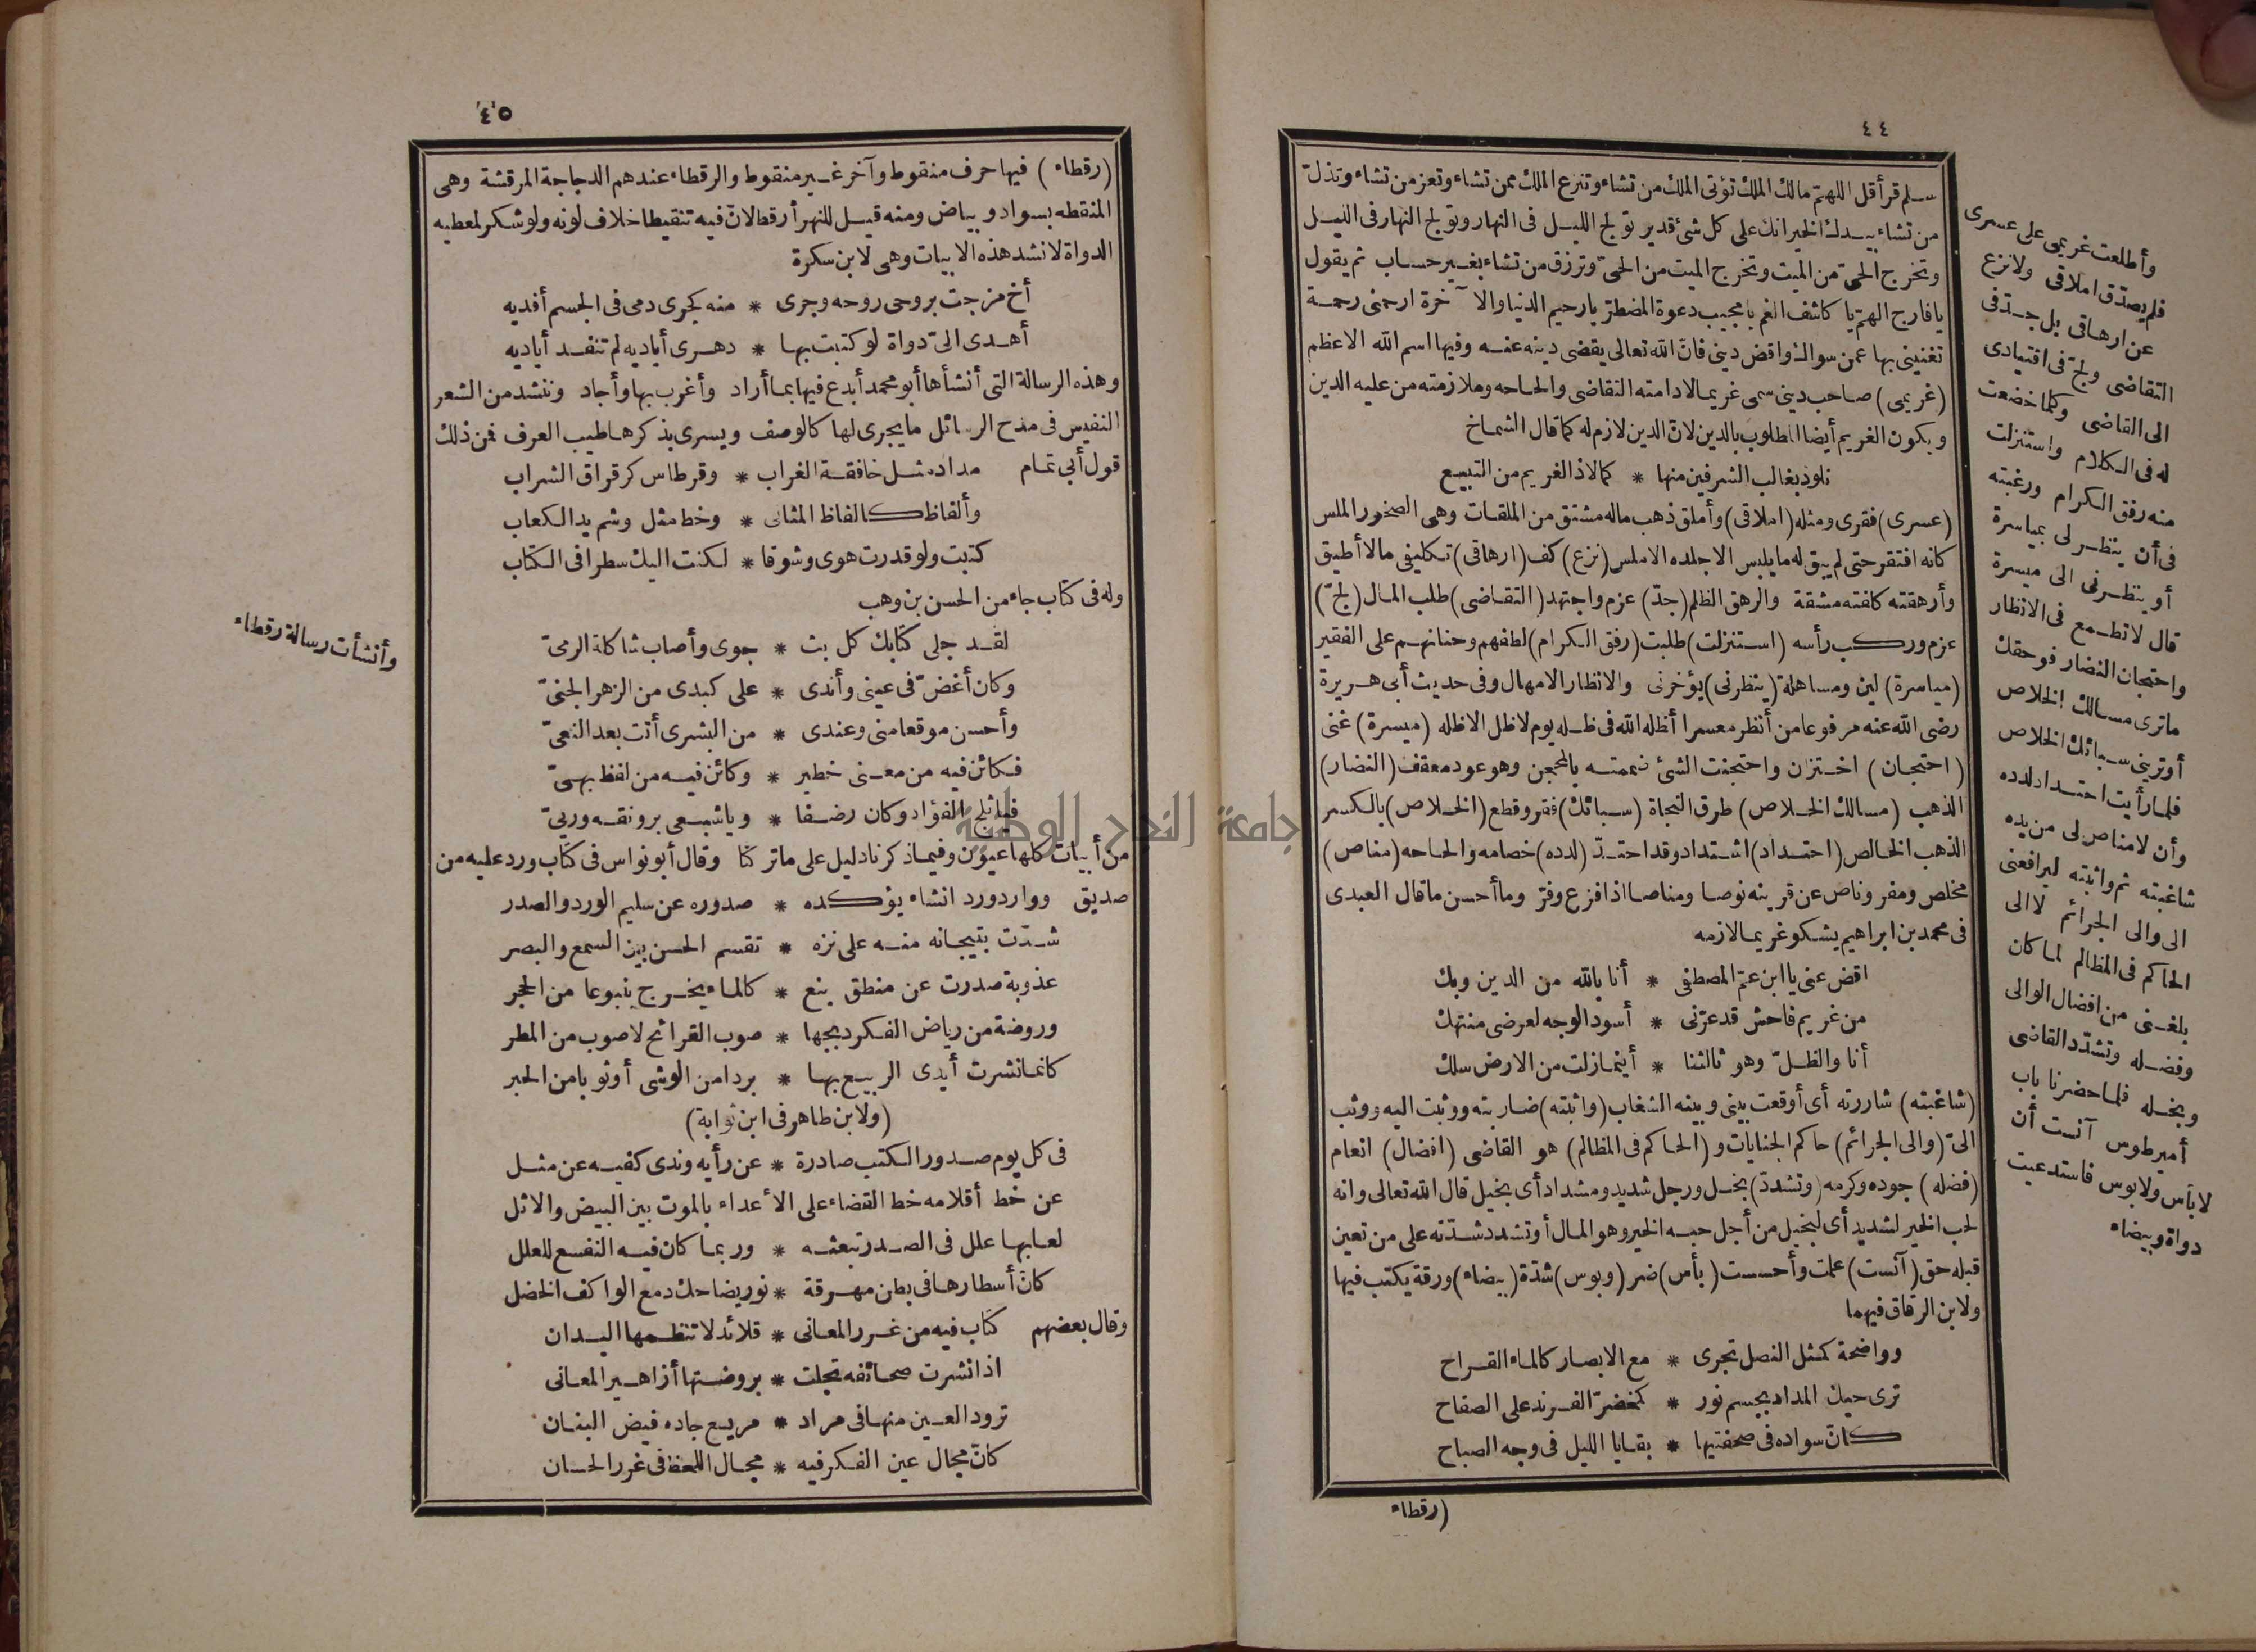 ٤٤
سلم قر أقل اللهم مالك الملك تؤتى الملك من تشاء وتنزع الملك ممن تشاء وتعز من تشاء وتذل
من تشاء بيدك الخير انك على كل شئ قدير تولج الليل فى النهار وتولج النهار فى الليل
وتخرج الحى من الميت وتخرج الميت من الحى وترزق من تشاء بغير حساب ثم يقول
يا فارج الهم يا كاشف الغم يا مجيب دعوة المضطر يا رحيم الدنيا والآخرة ارحمنى رحمة
تغنينى بها عمن سواك واقض دينى فان الله تعالى يقضى دينه عنه وفيها اسم الله الاعظم
(غريمى) صاحب دينى سمى غريما لادامته التقاضى والحاحه وملازمته من عليه الدين
ويكون الغريم أيضا المطلوب بالدين لان الدين لازم له كما قال الشماخ
تلوذ بغالب الشرفين منها * كما لاذ الغريم من التبيع
(عسرى) فقرى ومثله (املاقى) وأملق ذهب ماله مشتق من الملقات وهى الصخور الملس
كانه افتقر حتى لم يبق له ما يلبس الا جلده الاملس (نزع) كف (ارهاقى) تكليفى مالا أطيق
وأرهقته كلفته مشقة والرهق الظلم (جدّ) عزم واجتهد (التقاضى) طلب المال (لجّ)
عزم وركب رأسه (استنزلت) طلبت (رفق الكرام) لطفهم وحنانهم على الفقير
(مياسرة) لين ومساهلة (ينظرنى) يؤخرنى والانظار الامهال وفى حديث أبى هريرة
رضى الله عنه مرفوعا من أنظر معسرا أظله الله فى ظله يوم لا ظل الا ظله (ميسرة) غنى
(احتجان) اختزان واحتجنت الشئ ضممته بالمحجن وهو عود معقف (النضار)
الذهب (مسالك الخلاص) طرق النجاة (سبائك) فقر وقطع (الخلاص) بالكسر
الذهب الخالص (احتداد) اشتداد وقد احتدّ (لدده) خصامه والحاحه (مناص)
مخلص ومفر وناص عن قرينه نوصا ومناصا اذا فزع وفرّ وما أحسن ما قال العبدى
فى محمد بن ابراهيم يشكو غريما لازمه
اقض عنى يا ابن عمّ المصطفى * أنا بالله من الدين وبك
من غريم فاحش قد عزنى * أسود الوجه لعرضى منتهك
أنا والظلّ وهو ثالثنا * أينما زلت من الارض سلك
(شاغبته) شاررته أى أوقعت بينى وبينه الشغاب (واثبته) ضاربته ووثبت اليه ووثب
الىّ (والى الجرائم) حاكم الجنايات و (الحاكم فى المظالم) هو القاضى (افضال) انعام
(فضله) جوده وكرمه (وتشدد) بخل ورجل شديد ومشداد أى بخيل قال الله تعالى وانه
لحب الخير لشديد أى لبخيل من أجل حبه الخير وهو المال أو تشدد شدّته على من تعين
قبله حق (آنست) علمت وأحسست (بأس) ضر (وبوس) شدّة (بيضاء) ورقة يكتب فيها
ولابن الزقاق فيهما
وواضحة كمثل النصل تجرى * مع الابصار كالماء القراح
ترى حبك المداد بجسم نور * كمخضرّ الفرند على الصفاح
كانّ سواده فى صحفتيها * بقايا الليل فى وجه الصباح
(رقطاء
وأطلعت غريمى على عسرى
فلم يصدّق املاقى ولا نزع
عن ارهاقى بل جدّ فى
التقاضى ولجّ فى اقتيادى
الى القاضى وكلما خضعت
له فى الكلام واستنزلت
منه رفق الكرام ورغبته
فى أن ينظر لى بمياسرة
أو ينظرنى الى ميسرة
قال لا تطمع فى الانظار
واحتجان النضار فوحقك
ما ترى مسالك الخلاص
أو ترينى سبائك الخلاص
فلما رأيت احتداد لدده
وأن لا مناص لى من يده
شاغبته ثم واثبته ليرافعنى
الى والى الجرائم لا الى
الحاكم فى المظالم لما كان
بلغنى من افضال الوالى
وفضله وتشدّد القاضى
وبخله فلما حضرنا باب
أمير طوس آنست أن
لا بأس ولا بوس فاستدعيت
دواة وبيضاء
٤٥
(رقطاء) فيها حرف منقوط وآخر غير منقوط والرقطاء عندهم الدجاجة المرقشة وهى
المنقطه بسواد وبياض ومنه قيل للنهر أرقط لانّ فيه تنقيطا خلاف لونه ولو شكر لمعطيه
الدواة لانشد هذه الابيات وهى لابن سكرة
أخ مزجت بروحى روحه وجرى * منه كجرى دمى فى الجسم أفديه
أهدى الىّ دواة لو كتبت بها * دهرى أياديه لم تنفد أياديه
وهذه الرسالة التى أنشأها أبو محمد أبدع فيها بما أراد وأغرب بها وأجاد وننشد من الشعر
النفيس فى مدح الرسائل ما يجرى لها كالوصف ويسرى بذكرها طيب العرف فمن ذلك
قول أبى تمام مداد مثل خافقة الغراب * وقرطاس كرقراق الشراب
وألفاظ كالفاظ المثانى * وخط مثل وشم يد الكعاب
كتبت ولو قدرت هوى وشوقا * لكنت اليك سطرا فى الكتاب
وله فى كتاب جاء من الحسن بن وهب
لقد جلى كتابك كل بث * جوى وأصاب شاكلة الرمىّ
وكان أغضّ فى عينى وأندى * على كبدى من الزهر الجنىّ
وأحسن موقعا منى وعندى * من البشرى أتت بعد النعىّ
فكائن فيه من معنى خطير * وكائن فيه من لفظ بهىّ
فيا ثلج الفؤاد وكان رضفا * ويا شبعى برونقه وريىّ
من أبيات كلها عيون وفيما ذكرنا دليل على ما تركنا وقال أبو نواس فى كتاب ورد عليه من
صديق ووارد ورد انشاء يؤكده * صدوره عن سليم الورد والصدر
شدّت بتيجانه منه على نزه * تقسم الحسن بين السمع والبصر
عذوبة صدرت عن منطق ينع * كالماء يخرج ينبوعا من الحجر
وروضة من رياض الفكر دبجها * صوب القرائح لا صوب من المطر
كانما نشرت أيدى الربيع بها * بردا من الوشى أو ثوبا من الحبر
(ولابن طاهر فى ابن ثوابة)
فى كل يوم صدور الكتب صادرة * عن رأيه وندى كفيه عن مثل
عن خط أقلامه خط القضاء على الأعداء بالموت بين البيض والاثل
لعابها علل فى الصدر تبعثه * وربما كان فيه النفع للعلل
كانّ أسطارها فى بطن مهرقة * نور يضاحك دمع الواكف الخضل
وقال بعضهم كتاب فيه من غرر المعانى * قلائد لا تنظمها اليدان
اذا نشرت صحائفه تجلت * بروضتها أزاهير المعانى
ترود العين منها فى مراد * مريع جاده فيض البنان
كانّ مجال عين الفكر فيه * مجال اللحظ فى غرر الحسان
وأنشأت رسالة رقطاء
جامعة النجاح الوطنية